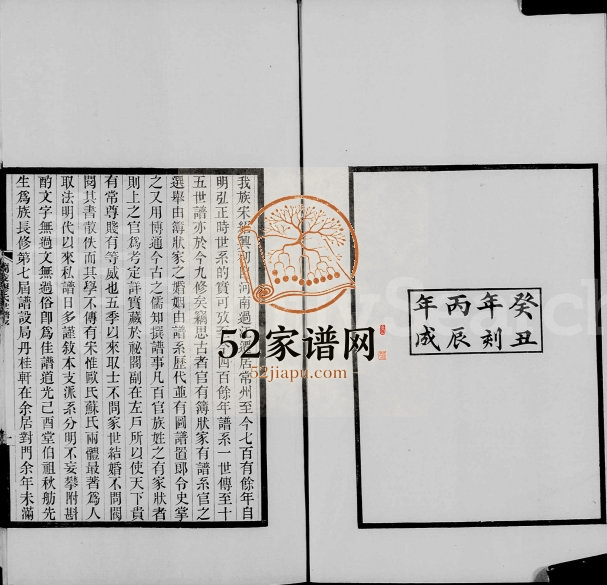 癸丑
年刻
丙辰
年成
我族宋紹興初由河南過江酒居常州至今七百有餘年自
明弘正時世系的實可攷至今四百餘年譜系一世傳至十
五世譜亦於今九修矣竊思古者官有簿狀家有譜系官之
選舉由簿狀家之婚姻由譜系歷代並有圖譜置郎令史掌
之又用博通今古之儒知撰譜事凡百官族姓之有家狀者
則上之官為考定詳實藏於祕閣副在左戶所以使天下貴
有常尊賤有等威也五季以來取士不問家世結婚不問閥
閱其書散佚而其學不傳有宋惟歐氏蘇氏兩體最著為人
取法明代以來私譜日多謹敘本支派系分明不妄攀附斟
酌文字無過文無過俗卽為佳譜道光己酉堂伯祖秋舫先
生為族長修第七屆譜設局丹桂軒在余居對門余年未滿
52家谱网
52jiapu.com